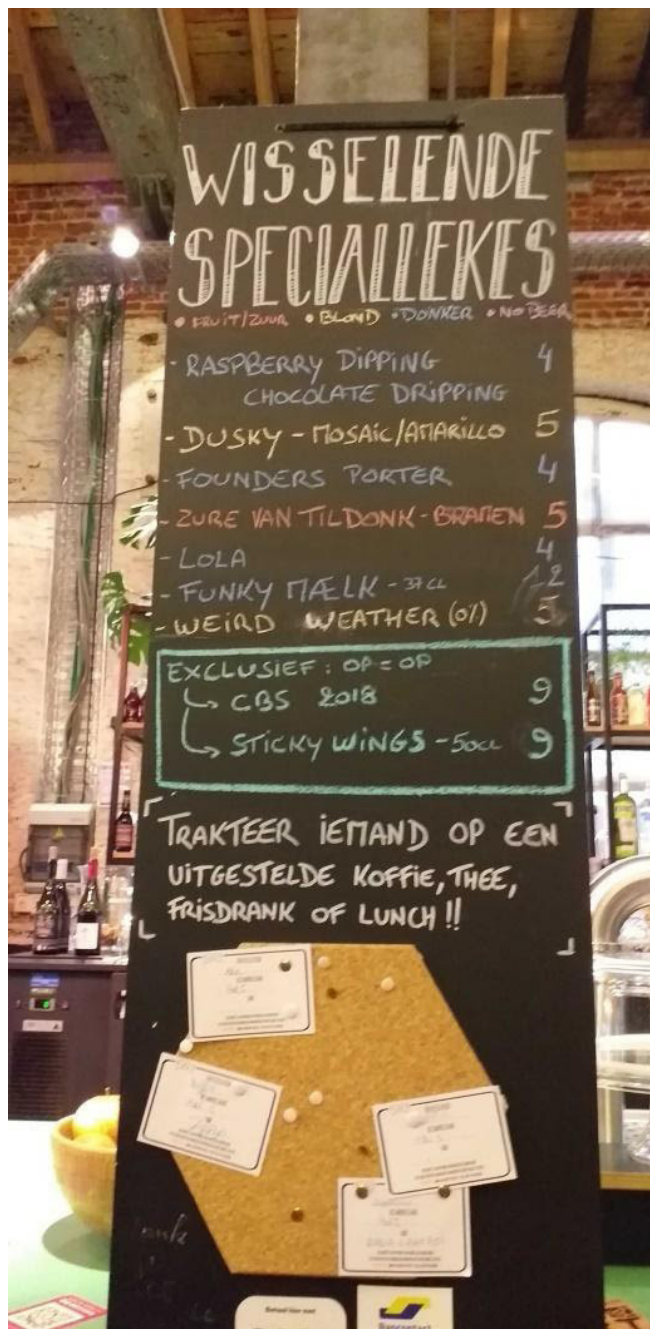 WISSELENDE
SPECIALLEKES
• FRUIT/ZUUR • BLOND • DONKER • NO BEER
- RASPBERRY DIPPING 4
CHOCOLATE DRIPPING
- DUSKY - MOSAIC/AMARILLO 5
- FOUNDERS PORTER 4
- ZURE VAN TILDONK - BRAMEN 5
- LOLA 4
- FUNKY MÆLK - 37CL 12
- WEIRD WEATHER (0%) 5
EXCLUSIEF: OP = OP
↳ CBS 2018 9
↳ STICKY WINGS - 50CL 9
TRAKTEER IEMAND OP EEN
UITGESTELDE KOFFIE, THEE,
FRISDRANK OF LUNCH !!
Betaal hier met
Bancontact